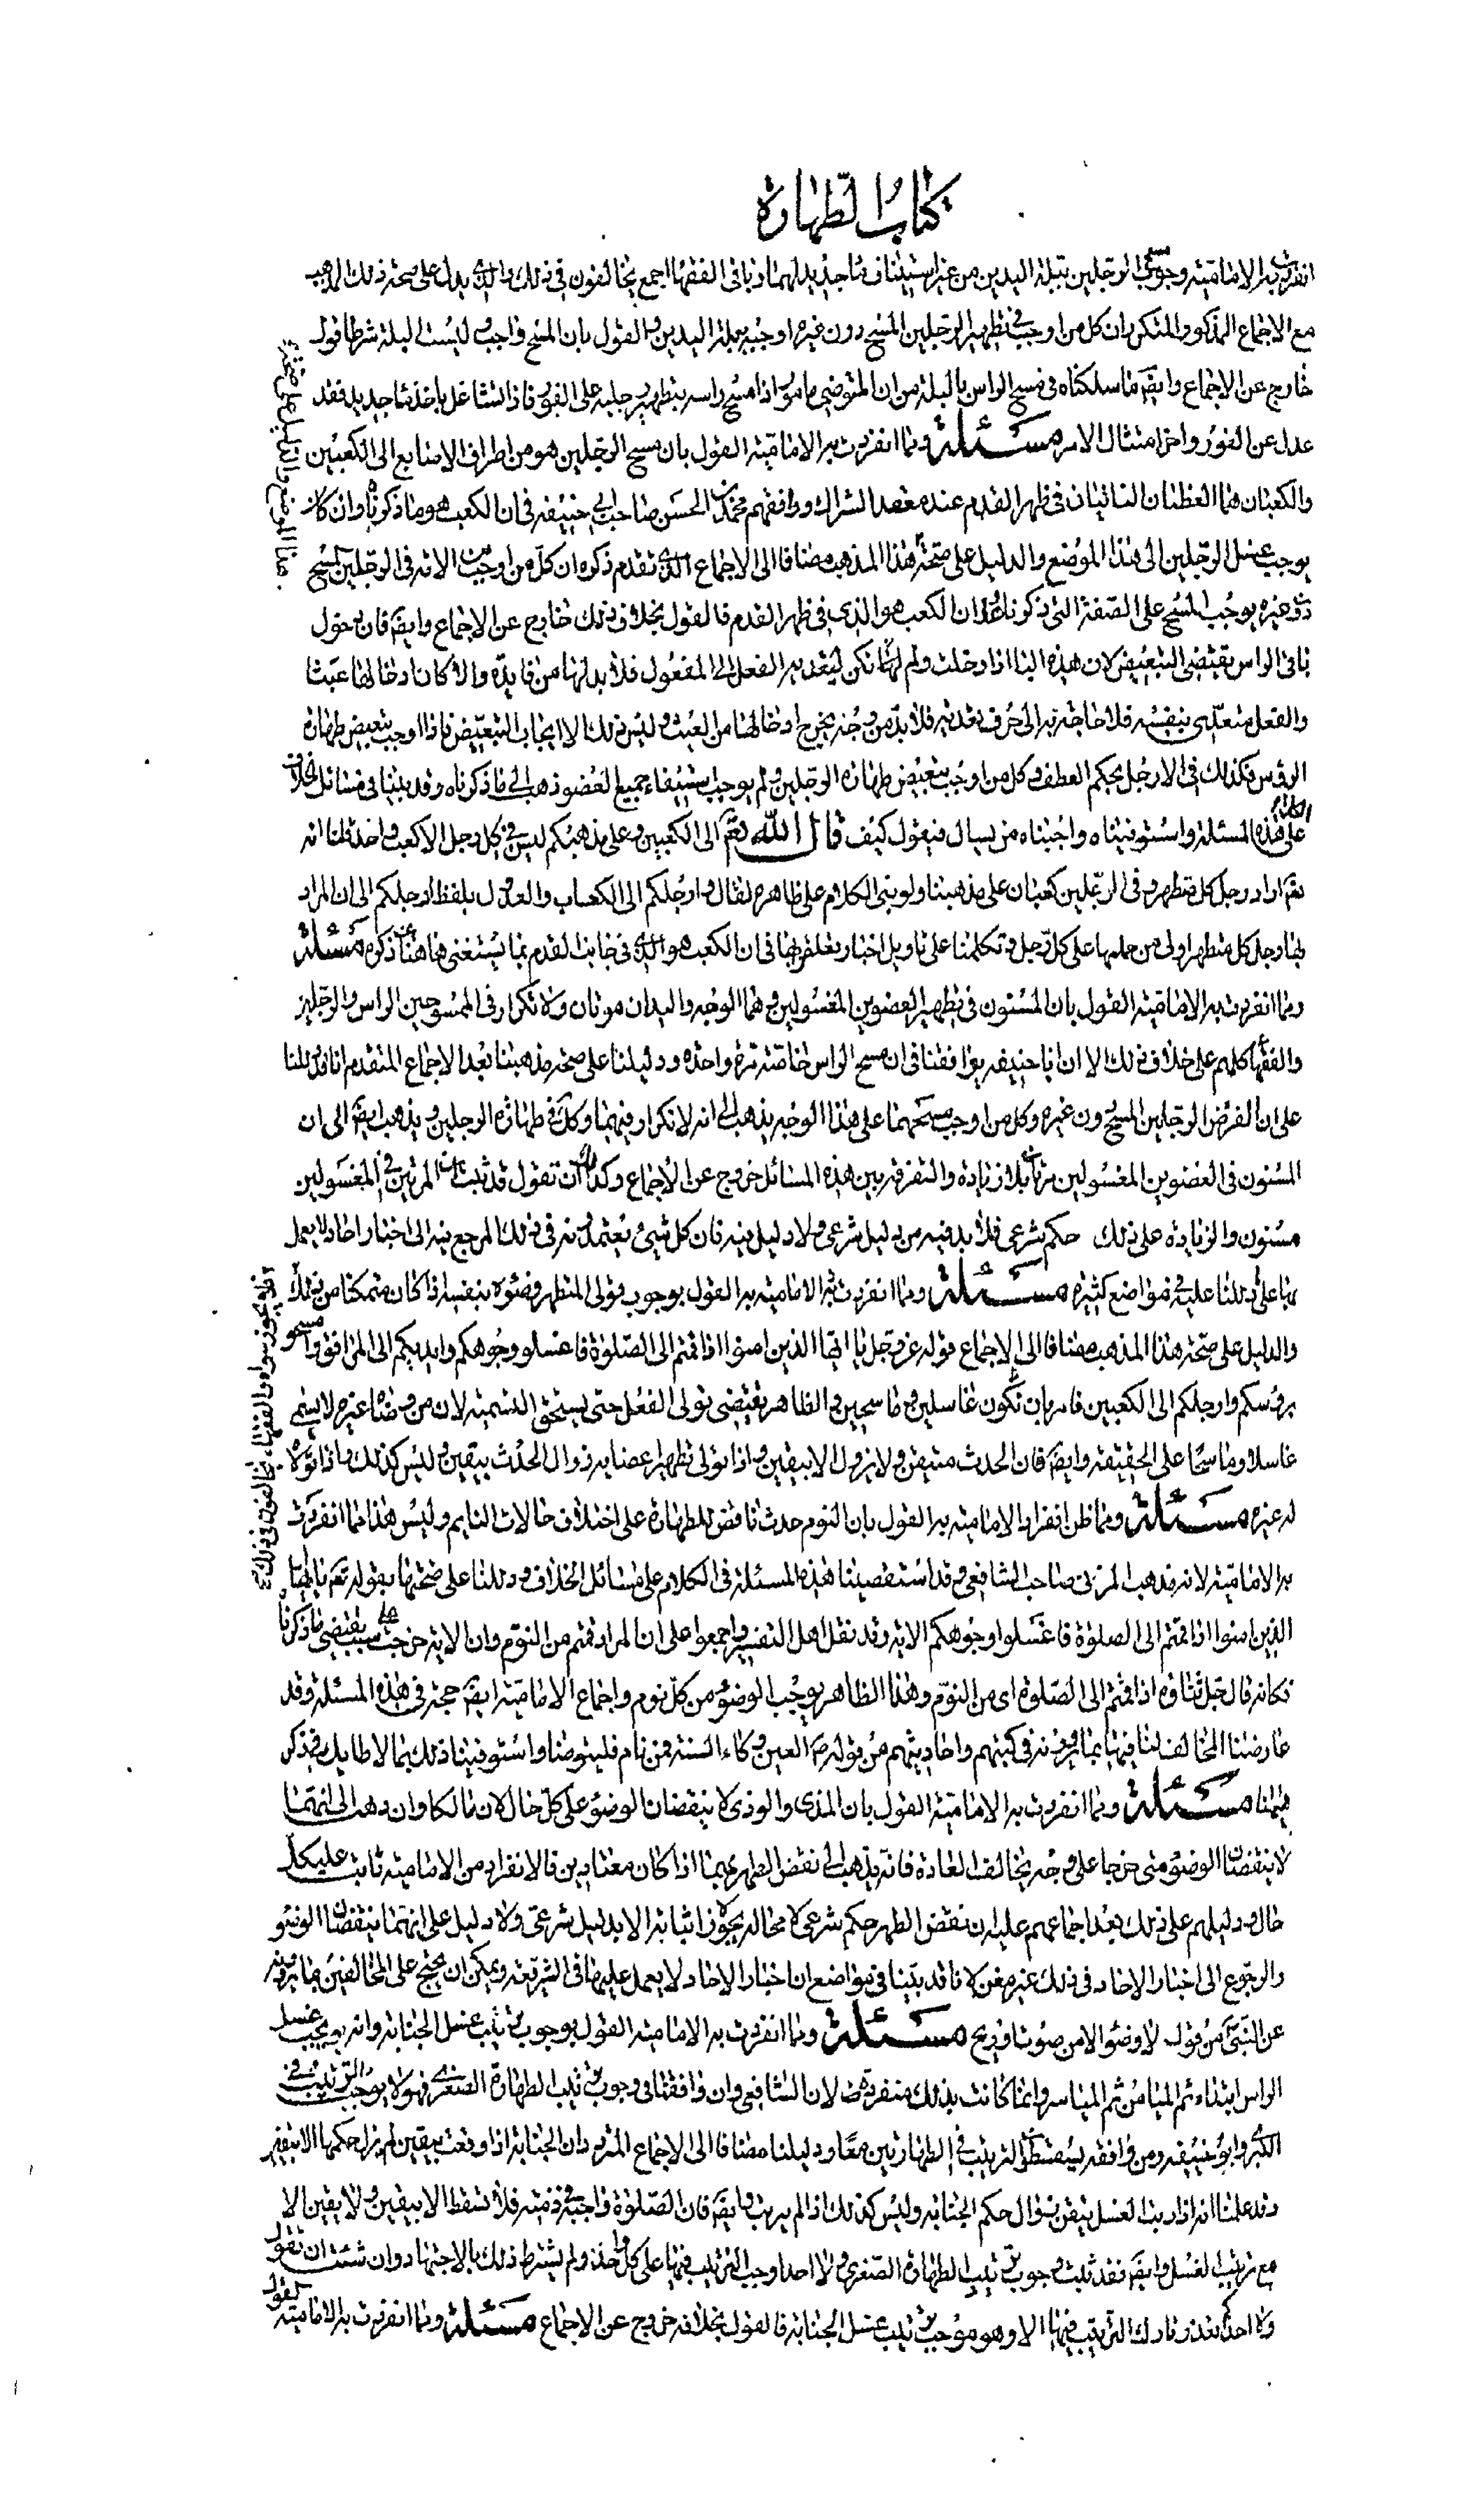 كتاب الطهارة
انفردت به الامامية وجوب مسح الرجلين ببلة اليدين من غير استيناف ماء جديد لهما و باقى الفقهاء اجمع يخالفون فى ذلك والذى يدل على صحة ذلك المذهب
مع الاجماع المذكور المتكرر ان كل من اوجب فى تطهير الرجلين المسح دون غيره اوجبه ببلة اليدين و القول بان المسح واجب وليست البلة شرطا قول
خارج عن الاجماع وايضَ ما سلكناه فى مسح الراس بالبلة من ان المتوضى مامور اذا مسح راسه بتطهير رجليه على الفور فاذا تشاغل باخذ ماء جديد فقد
عدل عن الفور واخر امتثال الامر مسئلة ومما انفردت به الامامية القول بان مسح الرجلين هو من اطراف الاصابع الى الكعبين
والكعبان هما العظمان الناتيان فى ظهر القدم عند معقد الشراك ووافقهم محمد بن الحسن صاحب ابى حنيفه فى ان الكعب هو ما ذكرناه وان كان
يوجب غسل الرجلين الى هذا الموضع والدليل على صحة هذا المذهب مضافا الى الاجماع الذى تقدم ذكره ان كل من اوجب من الامة فى الرجلين المسح
دون غيره يوجب المسح على الصفة التى ذكرناها وان الكعب هو الذى فى ظهر القدم فالقول بخلاف ذلك خارج عن الاجماع وايضَ فان دخول
باء فى الراس يقتضى التبعيض لان هذه الباء اذا دخلت ولم تكن لتعدية الفعل الى المفعول فلا بد لها من فايدة والا كان ادخالها عبثا
والفعل متعدى بنفسه فلا حاجة به الى حرف تعدية فلا بد من وجه يخرج ادخالها من العبث وليس ذلك الا ايجاب التبعيض فاذا وجب تبعيض طهارة
الرؤس فكذلك فى الارجل بحكم العطف وكل من اوجب تبعيض طهارة الرجلين ولم يوجب استيفاء جميع العضو ذهب الى ما ذكرناه وقد بينا فى مسائل الخلاف الكلام
على هذه المسئلة واستوفيناه واجبنا من يسال فيقول كيف قال الله تعَ الى الكعبين وعلى مذهبكم ليس فى كل رجل الا كعب واحد قلنا انه
تعَ اراد رجل كل متطهر وفى الرجلين كعبان على مذهبنا ولو بنى الكلام على ظاهره لقال وارجلكم الى الكعاب والعدول بلفظ ارجلكم الى ان المراد
بها رجل كل متطهر اولى من حملها على كل رجل وتكلمنا على تاويل اخبار تعلق بها فى ان الكعب هو الذى فى جانب القدم بما يستغنى هاهنا عن ذكره مسئلة
ومما انفردت به الامامية القول بان المسنون فى تطهير العضوين المغسولين وهما الوجه واليدان مرتان ولا تكرار فى الممسوحين الراس والرجلين
والفقهاء كلهم على خلاف ذلك الا ان ابا حنيفه يوافقنا فى ان مسح الراس خاصة مرة واحدة ودليلنا على صحة مذهبنا بعد الاجماع المتقدم انا قد دللنا
على ان الفرض الرجلين المسح دون غيره وكل من اوجب مسحهما على هذا الوجه يذهب الى انه لا تكرار فيهما وكل فى طهارة الرجلين ويذهب ايضَ الى ان
المسنون فى العضوين المغسولين مرتان بلا زيادة والتفرقة بين هذه المسائل خروج عن الاجماع وكذا ان تقول قد ثبت ان المرتين فى المغسولين
مسنون والزيادة على ذلك حكم شرعى فلا بد فيه من دليل شرعى ولا دليل فيه فان كل شئ يعتمدونه فى ذلك المرجع فيه الى اخبار احاد لا يعمل
بها على ما دللنا عليه فى مواضع كثيرة مسئلة ومما انفردت به الامامية القول بوجوب تولى المتطهر وضوئه بنفسه اذا كان متمكنا من ذلك
والدليل على صحة هذا المذهب مضافا الى الاجماع قوله عز وجل يا ايها الذين امنوا اذا قمتم الى الصلوة فاغسلوا وجوهكم وايديكم الى المرافق وامسحوا
برؤسكم وارجلكم الى الكعبين فامر بان نكون غاسلين وماسحين والظاهر يقتضى تولى الفعل حتى يستحق التسمية لان من وضاه غيره لا يسمى
غاسلا وماسحا على الحقيقة وايضَ فان الحدث متيقن ولا يزول الا بيقين واذا تولى تطهير اعضايه زوال الحدث بيقين وليس كذلك اذا تولاه
له غيره مسئلة ومما ظن انفراد الامامية به القول بان النوم حدث ناقض للطهارة على اختلاف حالات النايم وليس هذا مما انفردت
به الامامية لانه مذهب المزنى صاحب الشافعى وقد استقصينا هذه المسئلة فى الكلام على مسائل الخلاف ودللنا على صحتها بقوله تعَ يا ايها
الذين امنوا اذا قمتم الى الصلوة فاغسلوا وجوهكم الاية وقد نقل اهل التفسير واجمعوا على ان المراد قمتم من النوم وان الاية خرجت على سبب يقتضى ما ذكرناه
فكانه قال جل ثناؤه اذا قمتم الى الصلوة اى من النوم وهذا الظاهر يوجب الوضوء من كل نوم واجماع الامامية ايضَ حجة فى هذه المسئلة وقد
عارضنا المخالف لنا فيها بما يروونه فى كتبهم واحاديثهم من قوله صَ العين وكاء السته فمن نام فليتوضا واستوفينا ذلك بما لا طايل فى ذكره
هيهنا مسئلة ومما انفردت به الامامية القول بان المذى والوذى لا ينقضان الوضوء على كل حال لان مالكا وان ذهب الى انهما
لا ينقضان الوضوء متى خرجا على وجه يخالف العادة فانه يذهب الى نقض الطهر بهما اذا كان معتادين فالانفراد من الامامية ثابت على كل
حال ودليلهم على ذلك بعد اجماعهم عليه ان نقض الطهر حكم شرعى لا محالة لا يجوز اثباته الا بدليل شرعى ولا دليل على انهما ينقضان الوضوء
والرجوع الى اخبار الاحاد فى ذلك غير مغن لانا قد بينا فى مواضع ان اخبار الاحاد لا يعمل عليها فى الشريعة ويمكن ان يحتج على المخالفين بما يروونه
عن النبى من قوله لا وضوء الا من صوت او ريح مسئلة ومما انفردت به الامامية القول بوجوب ترتيب غسل الجنابة وانه يجب غسل
الراس ابتداء ثم الميامن ثم المياسر وانما كانت بذلك منفردة لان الشافعى وان وافقنا فى وجوب ترتيب الطهارة الصغرى فهو لا يوجب الترتيب فى
الكبرى وابو حنيفه ومن وافقه يسقط الترتيب فى الطهارتين معا ودليلنا مضافا الى الاجماع المتردد ان الجنابة اذا وقعت بيقين لم يزل حكمها الا بيقين
وقد علمنا انه اذا رتب الغسل تيقن بزوال حكم الجنابة وليس كذلك اذا لم يرتب وايضَ فان الصلوة واجبة فى ذمته فلا تسقط الا بيقين ولا يقين الا
مع ترتيب الغسل وايضَ فقد ثبت وجوب ترتيب الطهارة الصغرى ولا احد اوجب الترتيب فيها على كل احد ولم يشترط ذلك بالاجتهاد وان شئت ان تقول
ولا احد يعذر تارك الترتيب فيها الا وهو موجب ترتيب غسل الجنابة فالقول بخلافه خروج عن الاجماع مسئلة ومما انفردت به الامامية القول